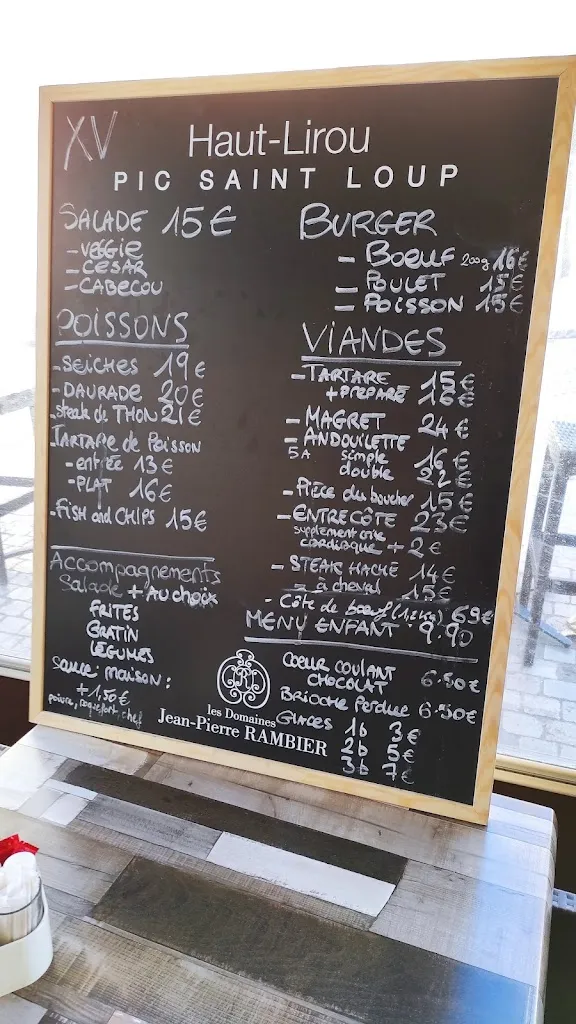 XV
Haut-Lirou
PIC SAINT LOUP
SALADE 15€
- VEGGIE
- CESAR
- CABECOU
POISSONS
- SEICHES 19€
- DAURADE 20€
- Steak de THON 21€
TARTARE de POISSON
- entrée 13€
- PLAT 16€
- FISH and CHIPS 15€
Accompagnements
Salade + Au choix
FRITES
GRATIN
LEGUMES
Sauce maison :
+ 1,50€
poivre, roquefort, chef
BURGER
- BOEUF 200g 16€
- POULET 15€
- POISSON 15€
VIANDES
- TARTARE 15€
+ PREPARÉ 16€
- MAGRET 24€
- ANDOUILETTE
5A simple 16€
double 22€
- Pièce du boucher 15€
- ENTRECÔTE 23€
supplément
cardiaque + 2€
- STEAK HACHÉ 14€
- à cheval 15€
- Côte de boeuf (1,2kg) 69€
MENU ENFANT : 9.90
COEUR COULANT
CHOCOLAT 6.50€
BRIOCHE Perdue 6.50€
GLACES 1b 3€
2b 5€
3b 7€
les Domaines
Jean-Pierre RAMBIER